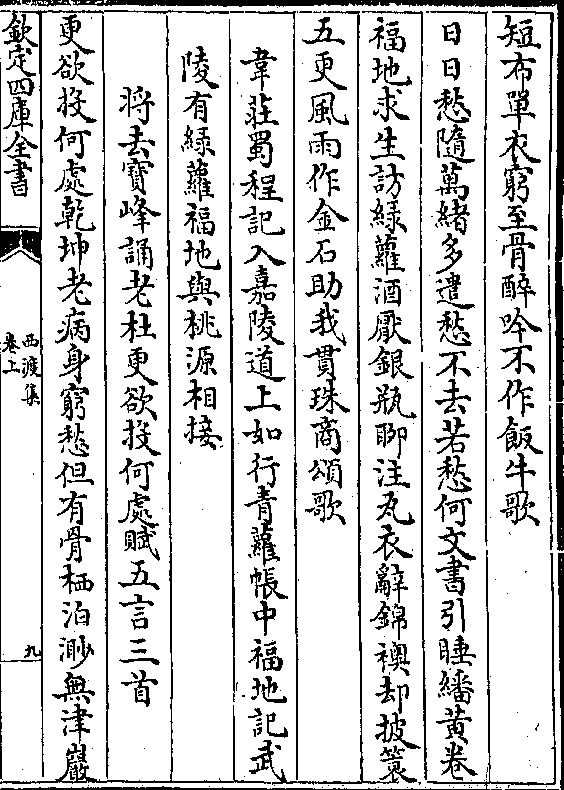 短布單衣窮至骨醉吟不作飯牛歌
日日愁隨萬緒多遣愁不去若愁何文書引睡繙黄卷
福地求生訪緑蘿酒厭銀瓶聊注瓦衣辭錦襖却披蓑
五更風雨作金石助我貫珠商頌歌
韋莊蜀程記入嘉陵道上如行青蘿帳中福地記武
陵有緑蘿福地與桃源相接
将去寶峰誦老杜更欲投何處賦五言三首
更欲投何處乾坤老病身窮愁但有骨栖泊渺無津巖
欽定四庫全書
西渡集
卷上
九